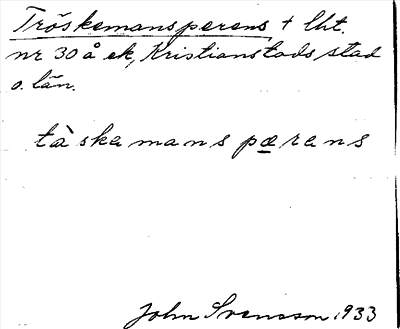 Tröskemansperens + lht.
nr 30 å ek, Kristianstads stad
o. län.
tàskamans pærens
John Svensson 1933